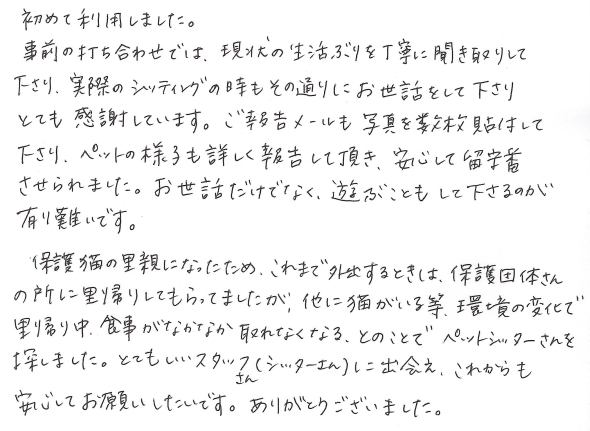 初めて利用しました。
事前の打ち合わせでは、現状の生活ぶりを丁寧に聞き取りして
下さり、実際のシッティングの時もその通りにお世話をして下さり
とても感謝しています。ご報告メールも写真を数枚貼付して
下さり、ペットの様子も詳しく報告して頂き、安心して留守番
させられました。お世話だけでなく、遊ぶこともして下さるのが
有り難いです。
保護猫の里親になったため、これまで外出するときは、保護団体さん
の所に里帰りしてもらってましたが、他に猫がいる等、環境の変化で
里帰り中、食事がなかなか取れなくなる、とのことでペットシッターさんを
探しました。とてもいいスタッフさん(シッターさん)に出会え、これからも
安心してお願いしたいです。ありがとうございました。